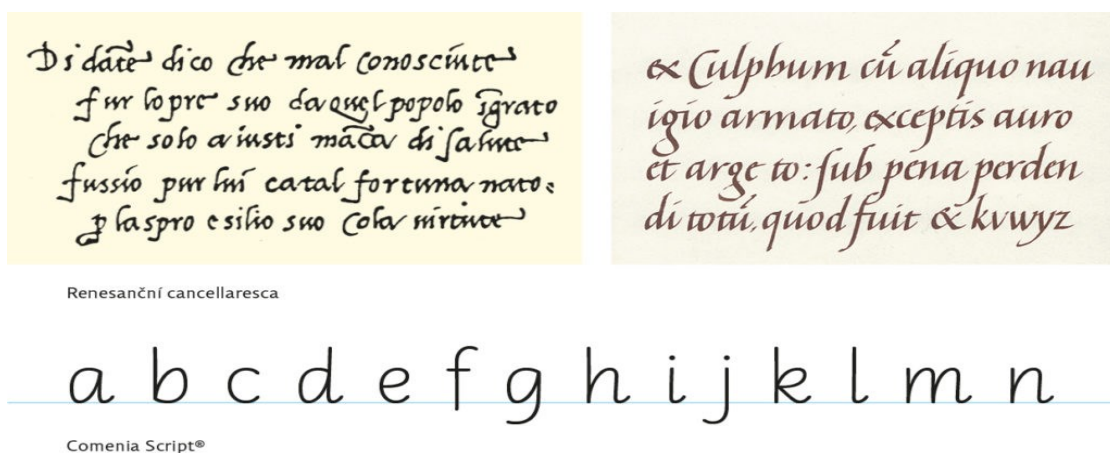 Di dante dico che mal conosciute
fur lopre suo da quel popolo īgrato
che solo a iusti māca di salute
fussio pur lui catal fortuna nato.
ꝑ laspro esilio suo cola virtute
& Culphum cū aliquo nau
igio armato, exceptis auro
et arge to: sub pena perden
di totū, quod fuit & kvwyz
Renesanční cancellaresca
a b c d e f g h i j k l m n
Comenia Script®